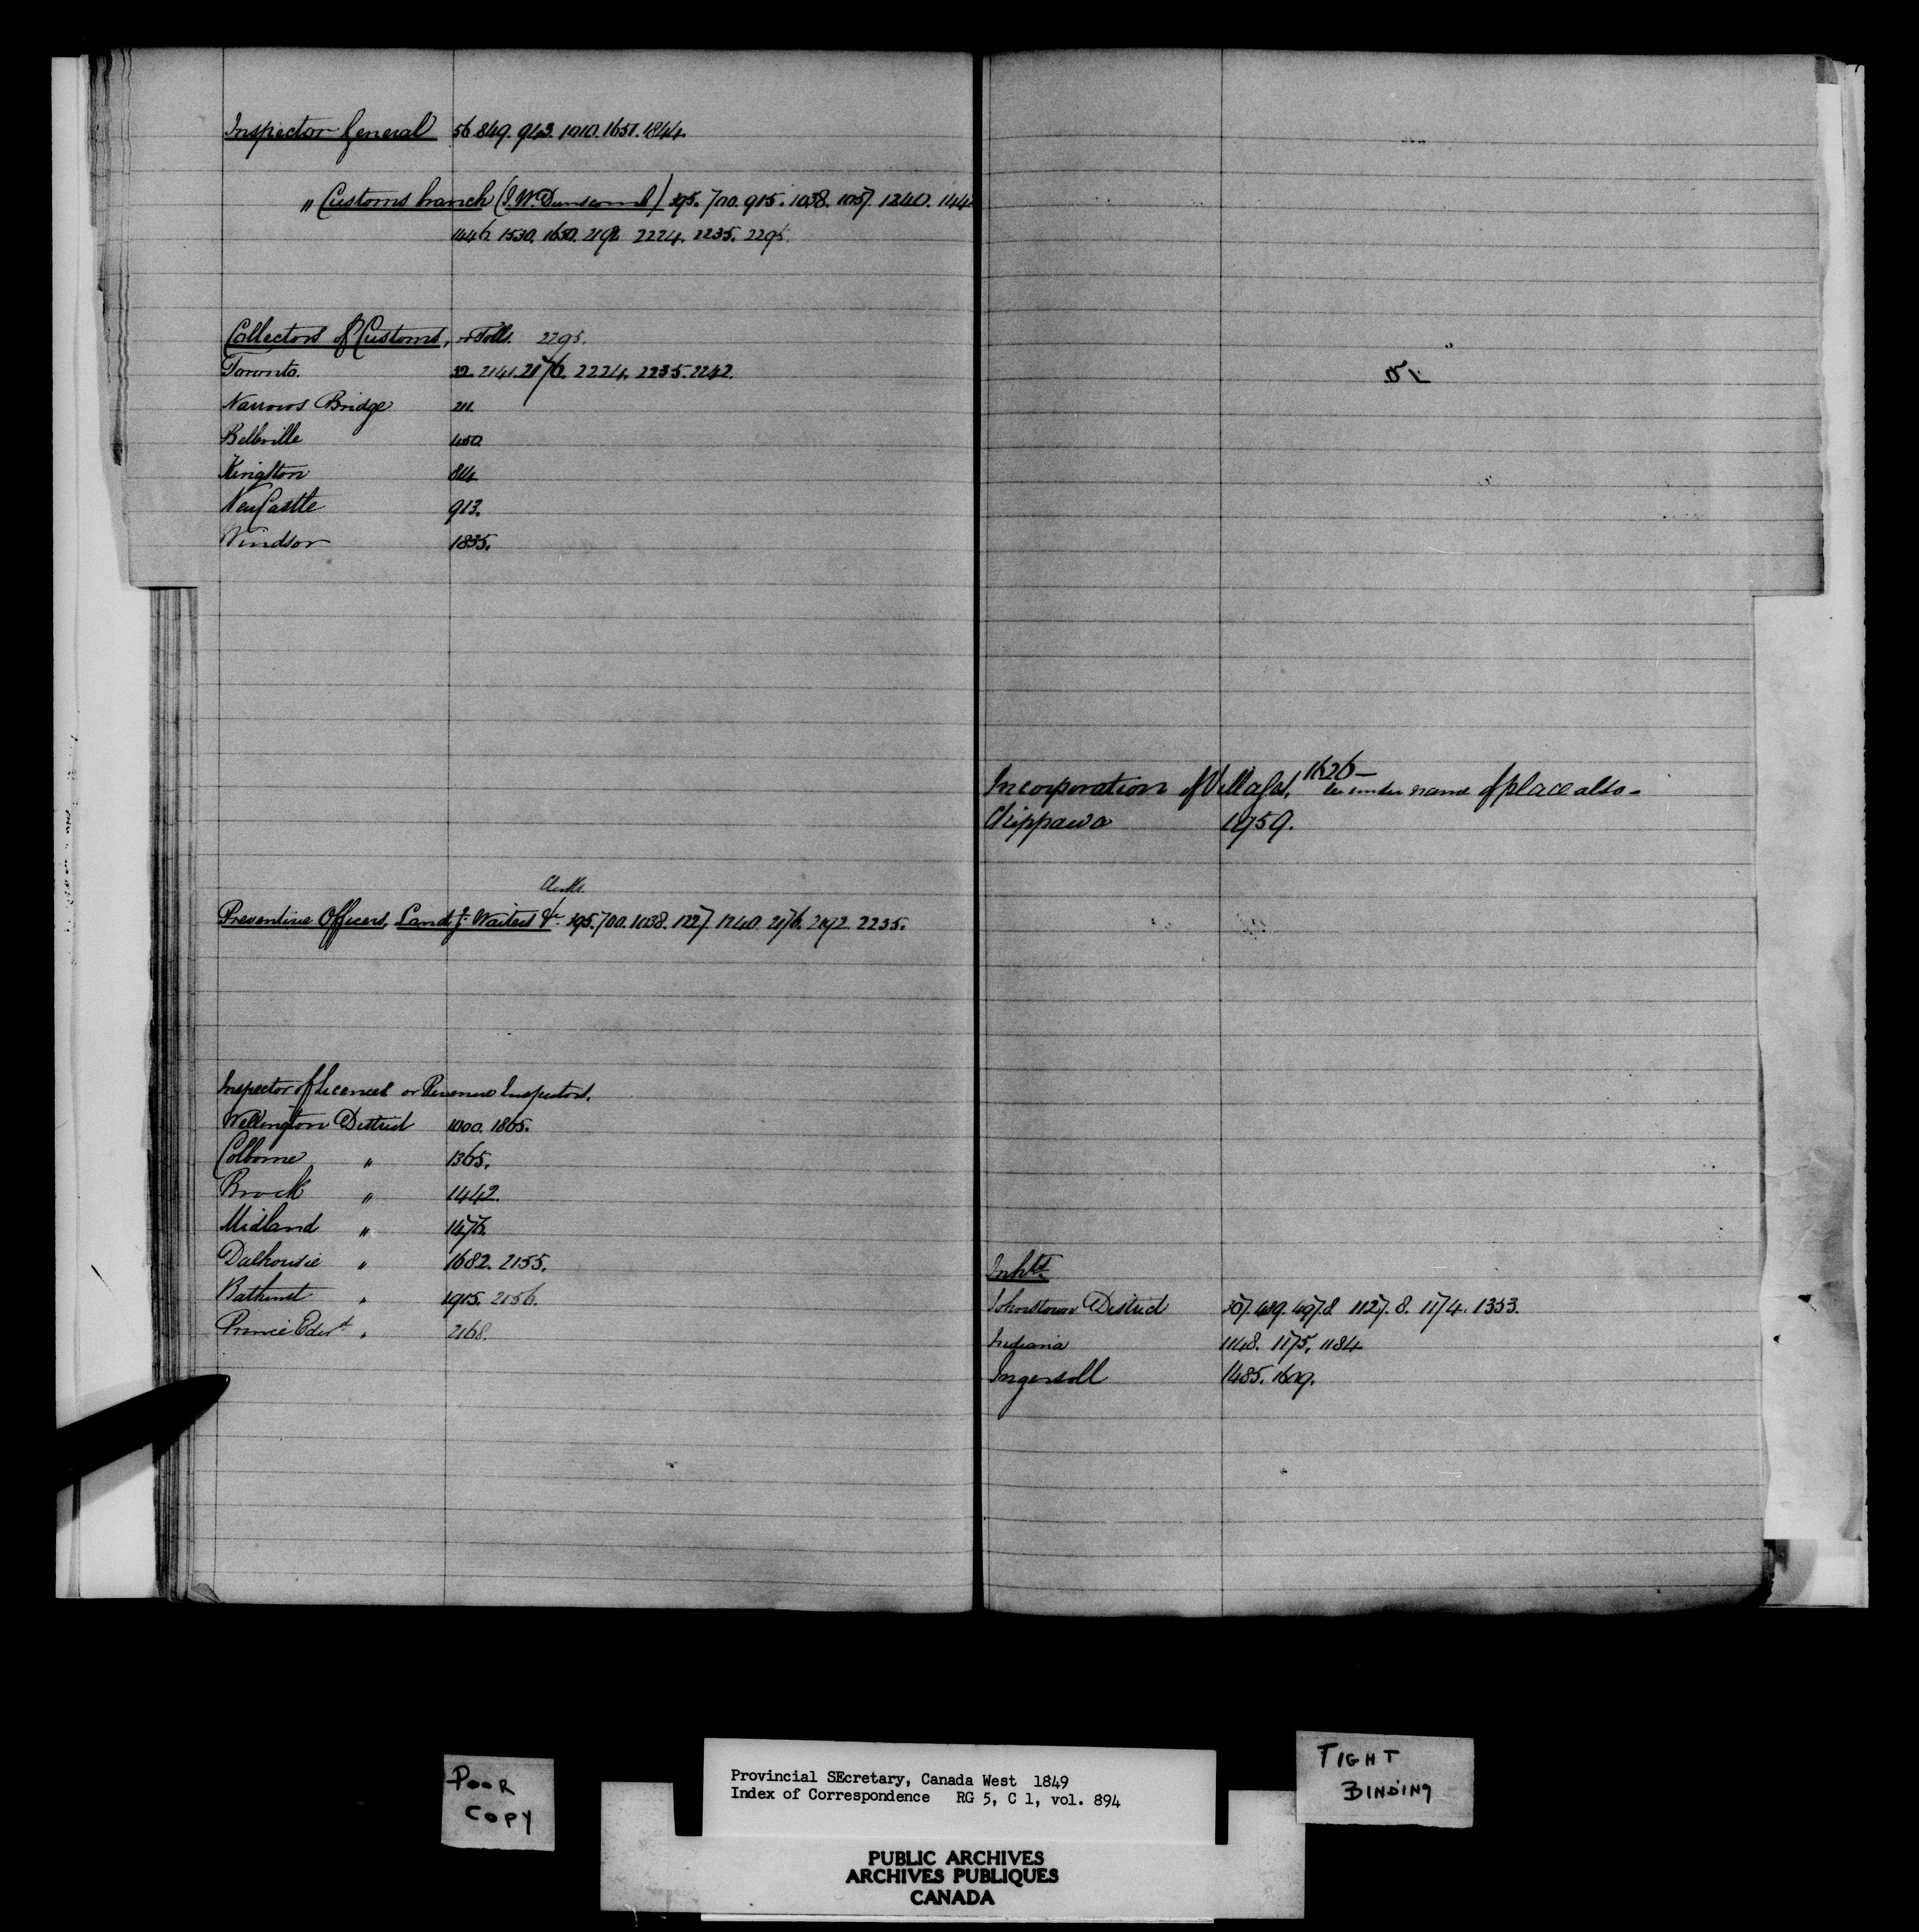 Inspector General 56. 849. 943. 1010. 1651. 1844.
" Customs branch (J. W. Dunscomb) 395. 700. 915. 1038. 1057. 1240. 144
1446. 1530. 1650. 2192 2224. 2235. 2295.
Collectors of Customs, or Tolls. 2295.
Toronto. 32. 2141. 2176. 2224. 2235. 2242.
Narrows Bridge 211.
Belleville 450.
Kingston 814
NewCastle 913.
Windsor 1835.
Clerks.
Preventive Officers, Land g. Waiters &c 395. 700. 1038. 1227. 1240. 2176. 2192. 2235.
Inspector of Licences or Revenue Inspectors.
Wellington District 1000. 1865.
Colborne " 1365.
Brock " 1442.
Midland " 1476.
Dalhousie " 1682. 2155.
Bathurst " 1915. 2156.
Prince Edwd " 2168.
1626—
Incorporation of Villages, see under name of place also—
Chippawa 1759.
Inhts
Johnstown District 307. 489. 497.8 1127.8. 1174. 1353.
Indiana 1148. 1175. 1184
Ingersoll 1485. 1609.
POOR
COPY
Provincial SEcretary, Canada West 1849
Index of Correspondence RG 5, C 1, vol. 894
TIGHT
BINDING
PUBLIC ARCHIVES
ARCHIVES PUBLIQUES
CANADA